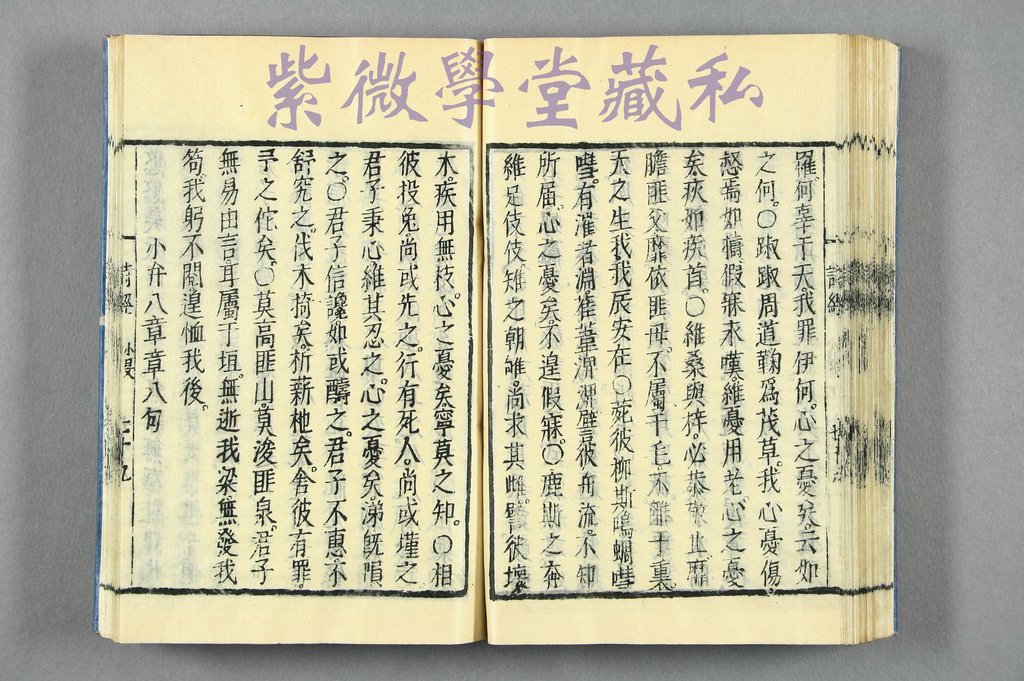 紫微學堂藏私
羅何辜于天。我罪伊何。心之憂矣。云如
之何。○踧踧周道。鞫爲茂草。我心憂傷。
惄焉如擣。假寐永嘆。維憂用老。心之憂
矣。疢如疾首。○維桑與梓。必恭敬止。靡
瞻匪父。靡依匪母。不屬于毛。不離于裏。
天之生我。我辰安在。○菀彼柳斯。鳴蜩嘒
嘒。有漼者淵。萑葦淠淠。譬彼舟流。不知
所届。心之憂矣。不遑假寐。○鹿斯之奔。
維足伎伎。雉之朝雊。尚求其雌。譬彼壞
木。疾用無枝。心之憂矣。寧莫之知。○相
彼投兔。尚或先之。行有死人。尚或墐之。
君子秉心。維其忍之。心之憂矣。涕旣隕
之。○君子信讒。如或醻之。君子不惠。不
舒究之。伐木掎矣。析薪杝矣。舍彼有罪。
予之佗矣。○莫高匪山。莫浚匪泉。君子
無易由言。耳屬于垣。無逝我梁。無發我
笱。我躬不閱。遑恤我後。
小弁八章章八句
詩經 小旻 七十九